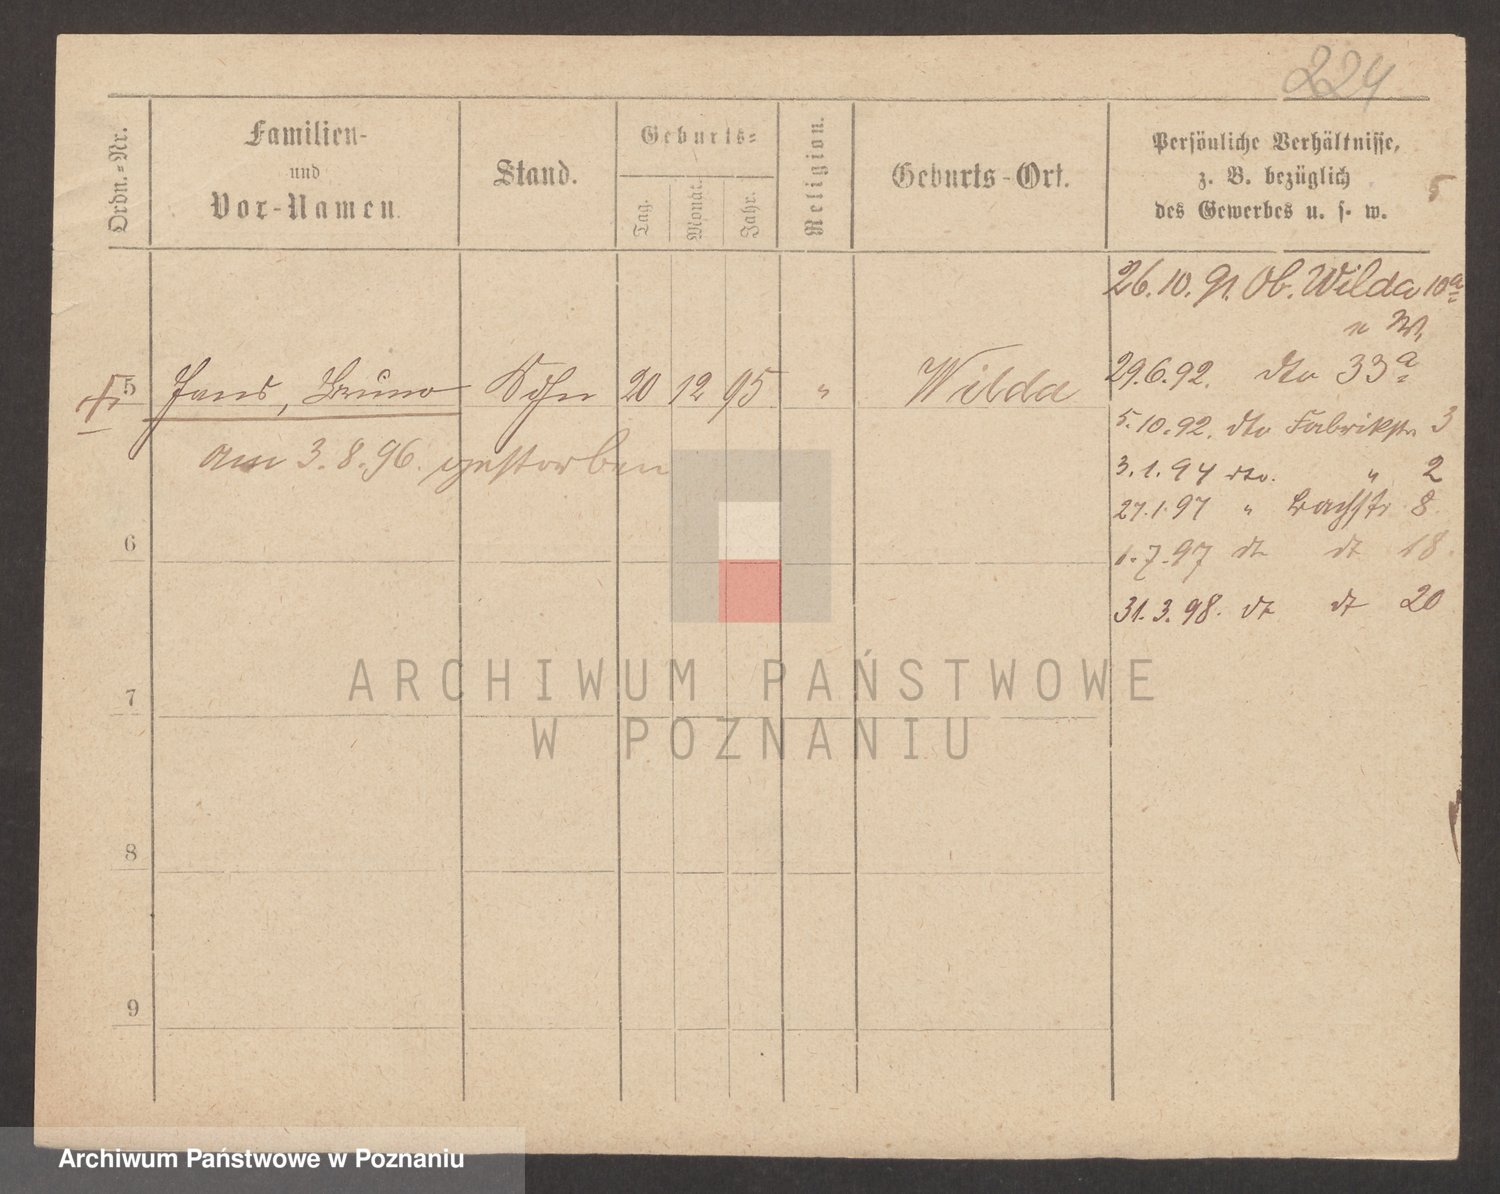 224
Ordn.-Nr.
Familien-
und
Vor-Namen.
Stand.
Geburts-
Tag.
Monat.
Jahr.
Religion.
Geburts-Ort.
Persönliche Verhältnisse,
z. B. bezüglich
des Gewerbes u. s. w.
5
26.10.91. Ob. Wilda 10a
n W.
5 Hans, Bruno Sohn 20 12 95 " Wilda
am 3.8.96. gestorben
29.6.92. dto 33a
5.10.92. dto Fabrikstr 3
3.1.94 dto. " 2
27.1.97 " Bachstr 8
1.7.97 dt dt 18.
31.3.98. dt dt 20
6
7
8
9
ARCHIWUM PAŃSTWOWE
W POZNANIU
Archiwum Państwowe w Poznaniu